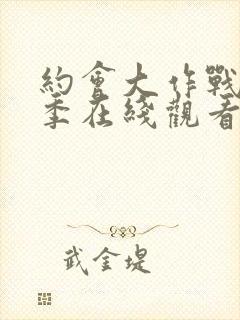 約會大作戰
季在綫觀看
武金堤